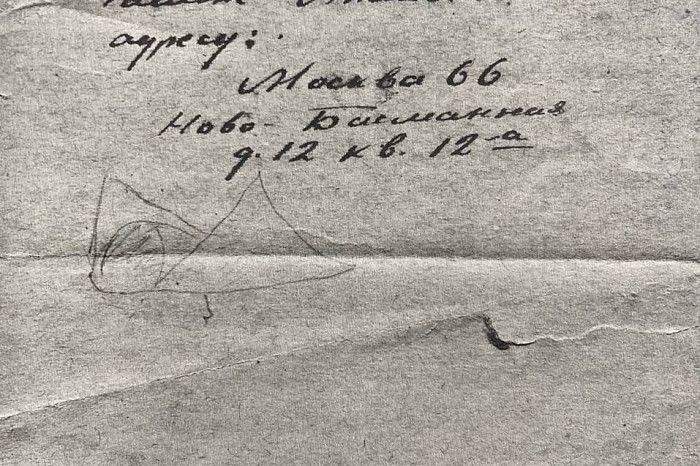 адресу:
Москва 66
Ново-Басманная
д. 12 кв. 12-а